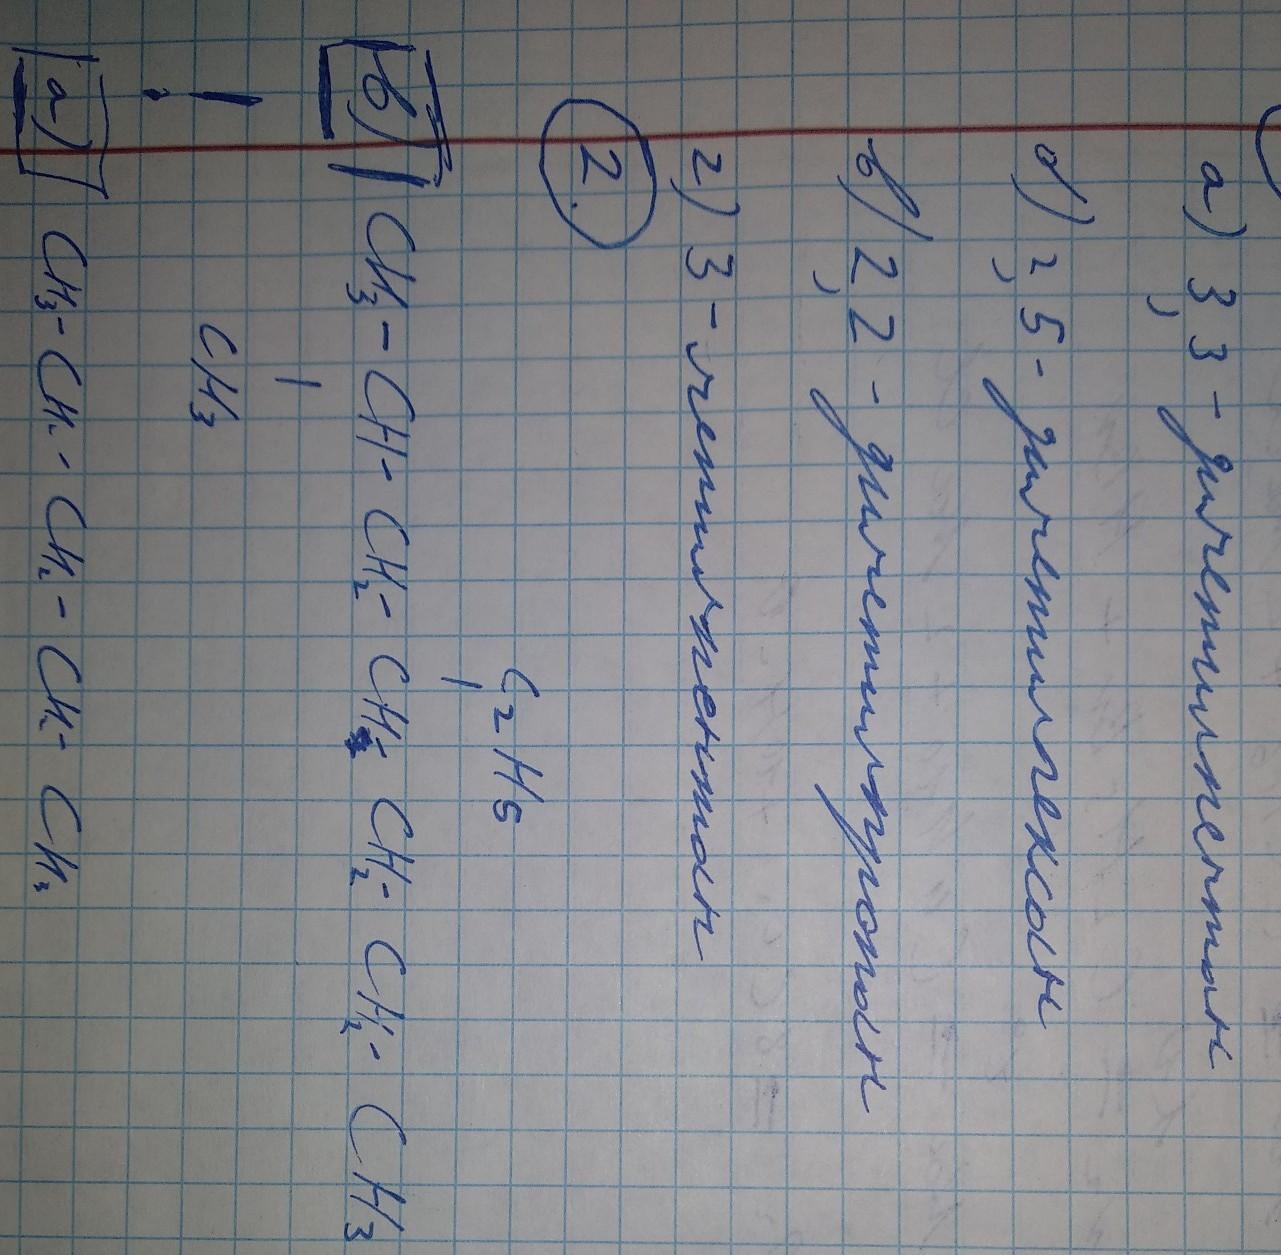 а) 3,3 - диметилпентан
б) 2,5 - диметилгексан
в) 2,2 - диметилпропан
г) 3 - метилпентан
2.
C2H5
|
в) CH3 - CH - CH2 - CH - CH2 - CH2 - CH3
|
! CH3
а) CH3 - CH2 - CH2 - CH2 - CH3